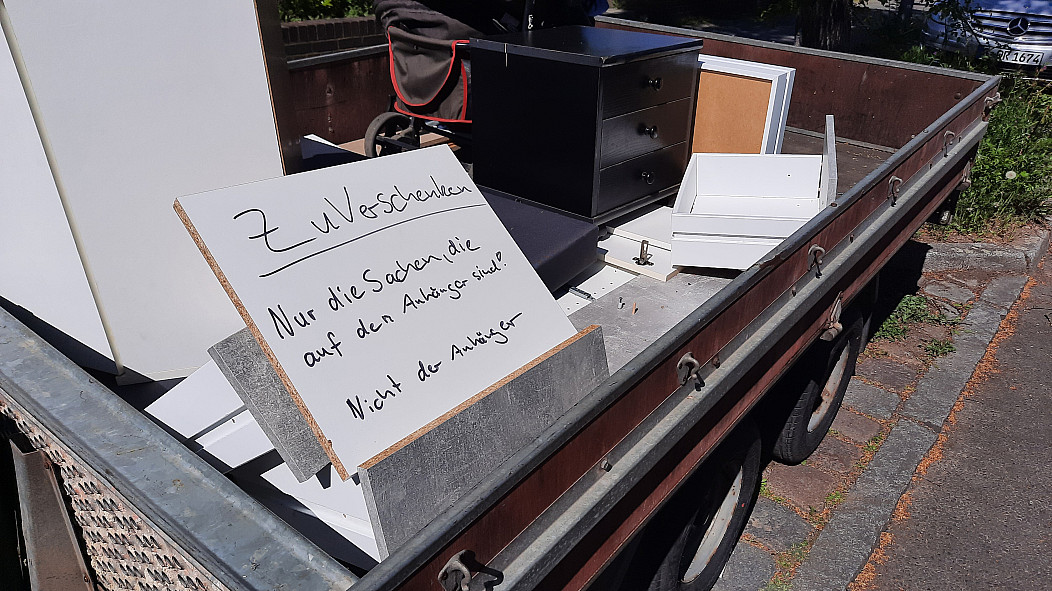 Zu Verschenken
Nur die Sachen, die
auf dem Anhänger sind!
Nicht der Anhänger
R 1674